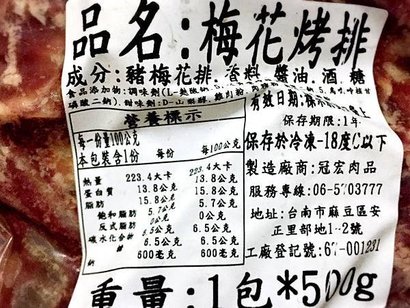 品名:梅花烤排
成分:豬梅花排.香料.醬油.酒.糖
食品添加物:調味劑
甜味劑:D-山梨醇
有效日期:
保存期限:1年
營養標示
每一份量100公克
本包裝含1份
每份 每100公克
熱量 223.4大卡 223.4大卡
蛋白質 13.8公克 13.8公克
脂肪 15.8公克 15.8公克
飽和脂肪 5.7公克 5.7公克
反式脂肪 0公克 0公克
碳水化合物 6.5公克 6.5公克
6.5公克 6.5公克
600毫克 600毫克
保存於冷凍-18度C以下
製造廠商:冠宏肉品
服務專線:06-5703777
地址:台南市麻豆區安
正里部地1-2號
工廠登記號:67-001231
重量:1包*500g